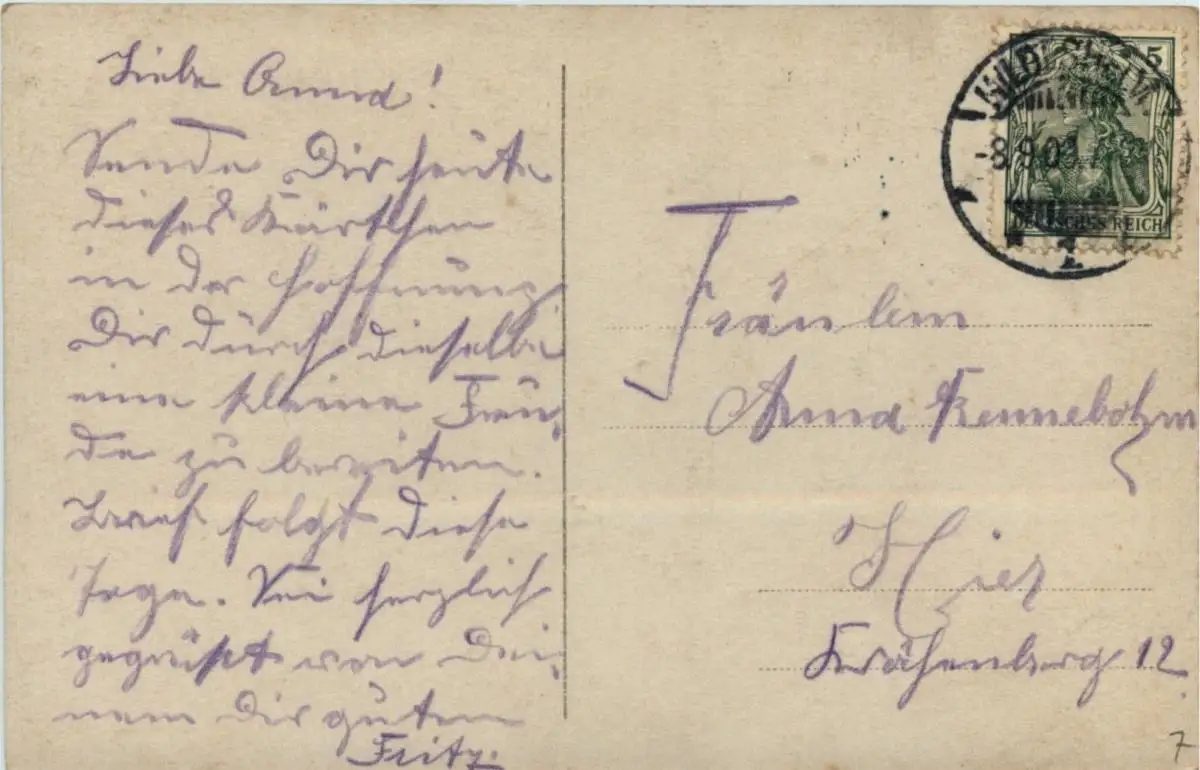 Liebe Anna!
Sende Dir heute
dieses Kärtchen
in der Hoffnung
Dir durch dieselbe
eine kleine Freu-
de zu bereiten.
Brief folgt diese
Tage. Sei herzlich
gegrüßt von Dei-
nem Dir guten
Fritz.
HILDESHEIM
-8.9.0
2
5
DEUTSCHES REICH
Fräulein
Anna Rennebohm
Hier
Krähenberg 12
7